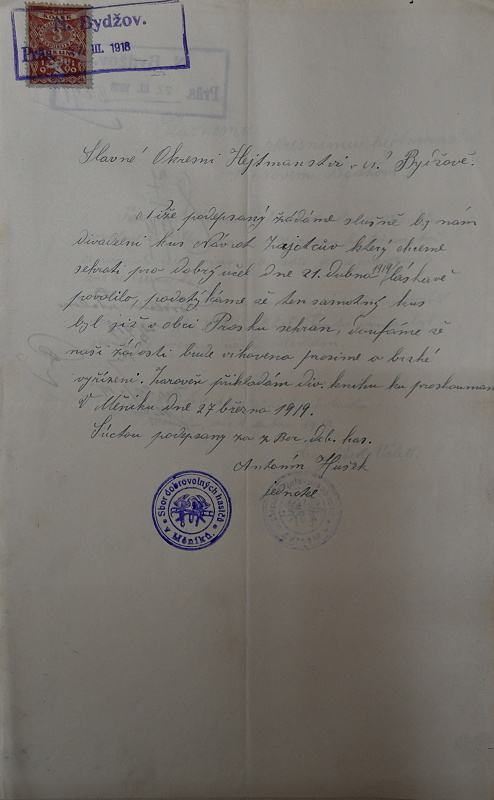 N. Bydžov.
III. 1918
Slavné Okresní Hejtmanství v N. Bydžově.
Níže podepsaný žádáme slušně by nám
divadelní kus Návrat Zajetcův který chceme
sehráti pro dobrý účel dne 21. dubna 1919 láskavě
povolilo, podotýkáme že ten samotný kus
byl již v obci Prasku sehrán, doufáme že
naší žádosti bude vihoveno prosíme o brzké
vyřízení. Zároveň přikládám div. knihu ku proskouman
V Měníku dne 27 března 1919.
Súctou podepsany za z Bor. dob. has.
Antonín Hušek
jednatel
Sbor dobrovolných hasičů
v Měníku.